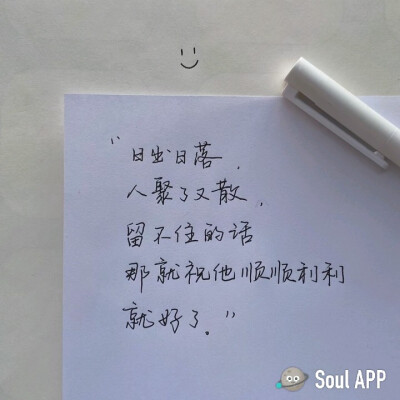 “日出日落，
人聚了又散，
留不住的话
那就祝他顺顺利利
就好了。”
Soul APP